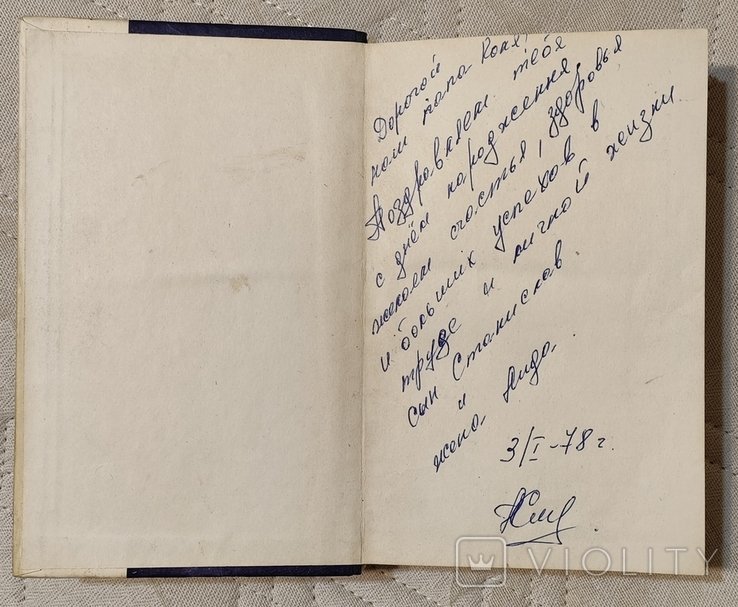 Дорогой
наш папа Коля,
Поздравляем тебя
с днём нарождження,
желаем счастья, здоровья
и больших успехов в
труде и личной жизни.
сын Станислав
и
жена Лида.
3/I-78 г.
VIOLITY